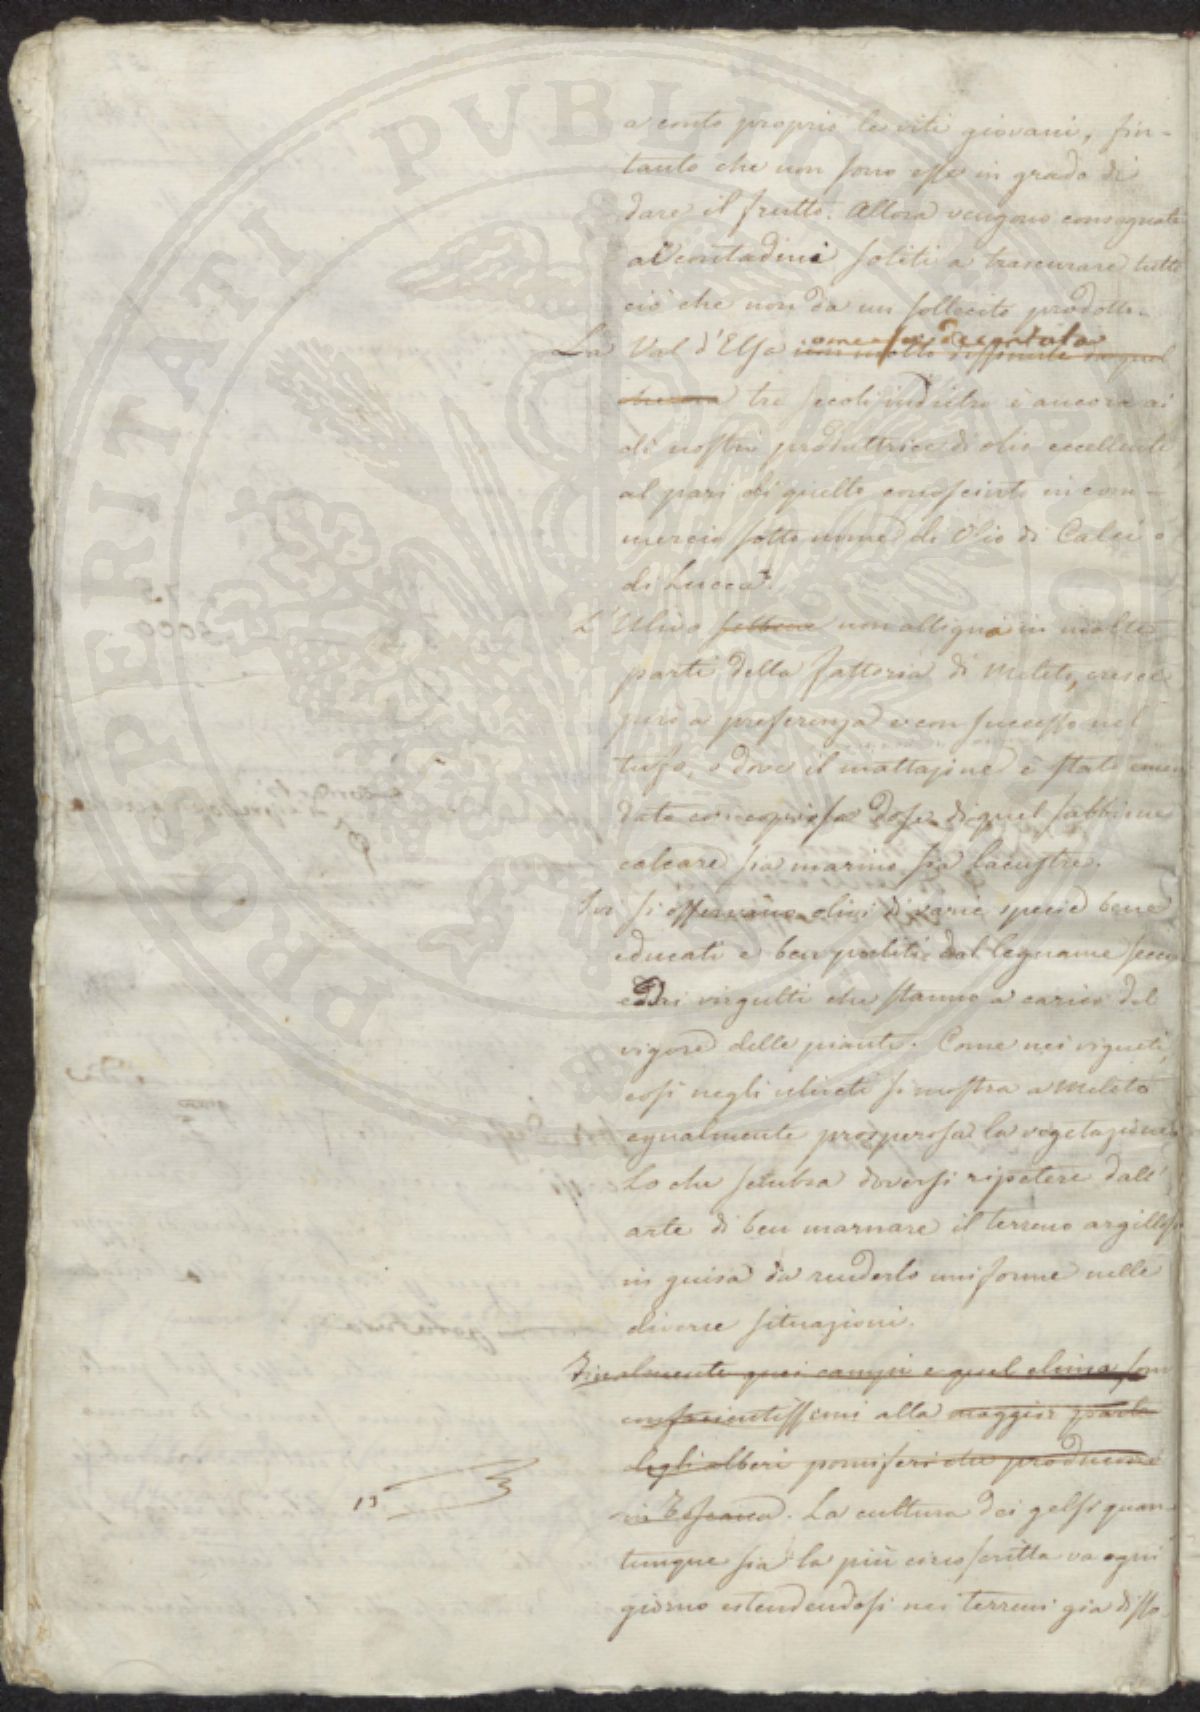 PROSPERITATI PVBLICAE
a conto proprio le viti giovani, fin-
tanto che non sono esse in grado di
dare il frutto. Allora vengono consegnate
ai contadini soliti a trascurare tutto
ciò che non da un sollecito prodotto.
decantata
La Val d'Elsa non molto
che era tre secoli indietro è ancora ai
dì nostri produttrice di olio eccellente
al pari di quello conosciuto in com-
mercio sotto nome di Olio di Calci o
di Lucca.
L'Ulivo sebbene non alligna in molte
parti della fattoria di Meleto, cresce
però a preferenza e con successo nel
tufo, o dove il mattajone è stato emen
dato con copiosa dose di quel sabbione
calcare sia marino sia lacustre.
Ivi si osservano olivi di varie specie bene
educati e ben puliti dal legname secco
e dai virgulti che stanno a carico del
vigore delle piante. Come nei vigneti,
così negli uliveti si mostra a Meleto
egualmente prosperosa la vegetazione
Lo che sembra doversi ripetere dall'
arte di ben marnare il terreno argilloso
in guisa da renderlo uniforme nelle
diverse situazioni.
Finalmente quei campi e quel clima son
confacientissimi alla maggior parte
degli alberi pomiferi che producono
in Toscana. La cultura dei gelsi quan-
tunque sia la più circoscritta va ogni
giorno estendendosi nei terreni già disso-
13